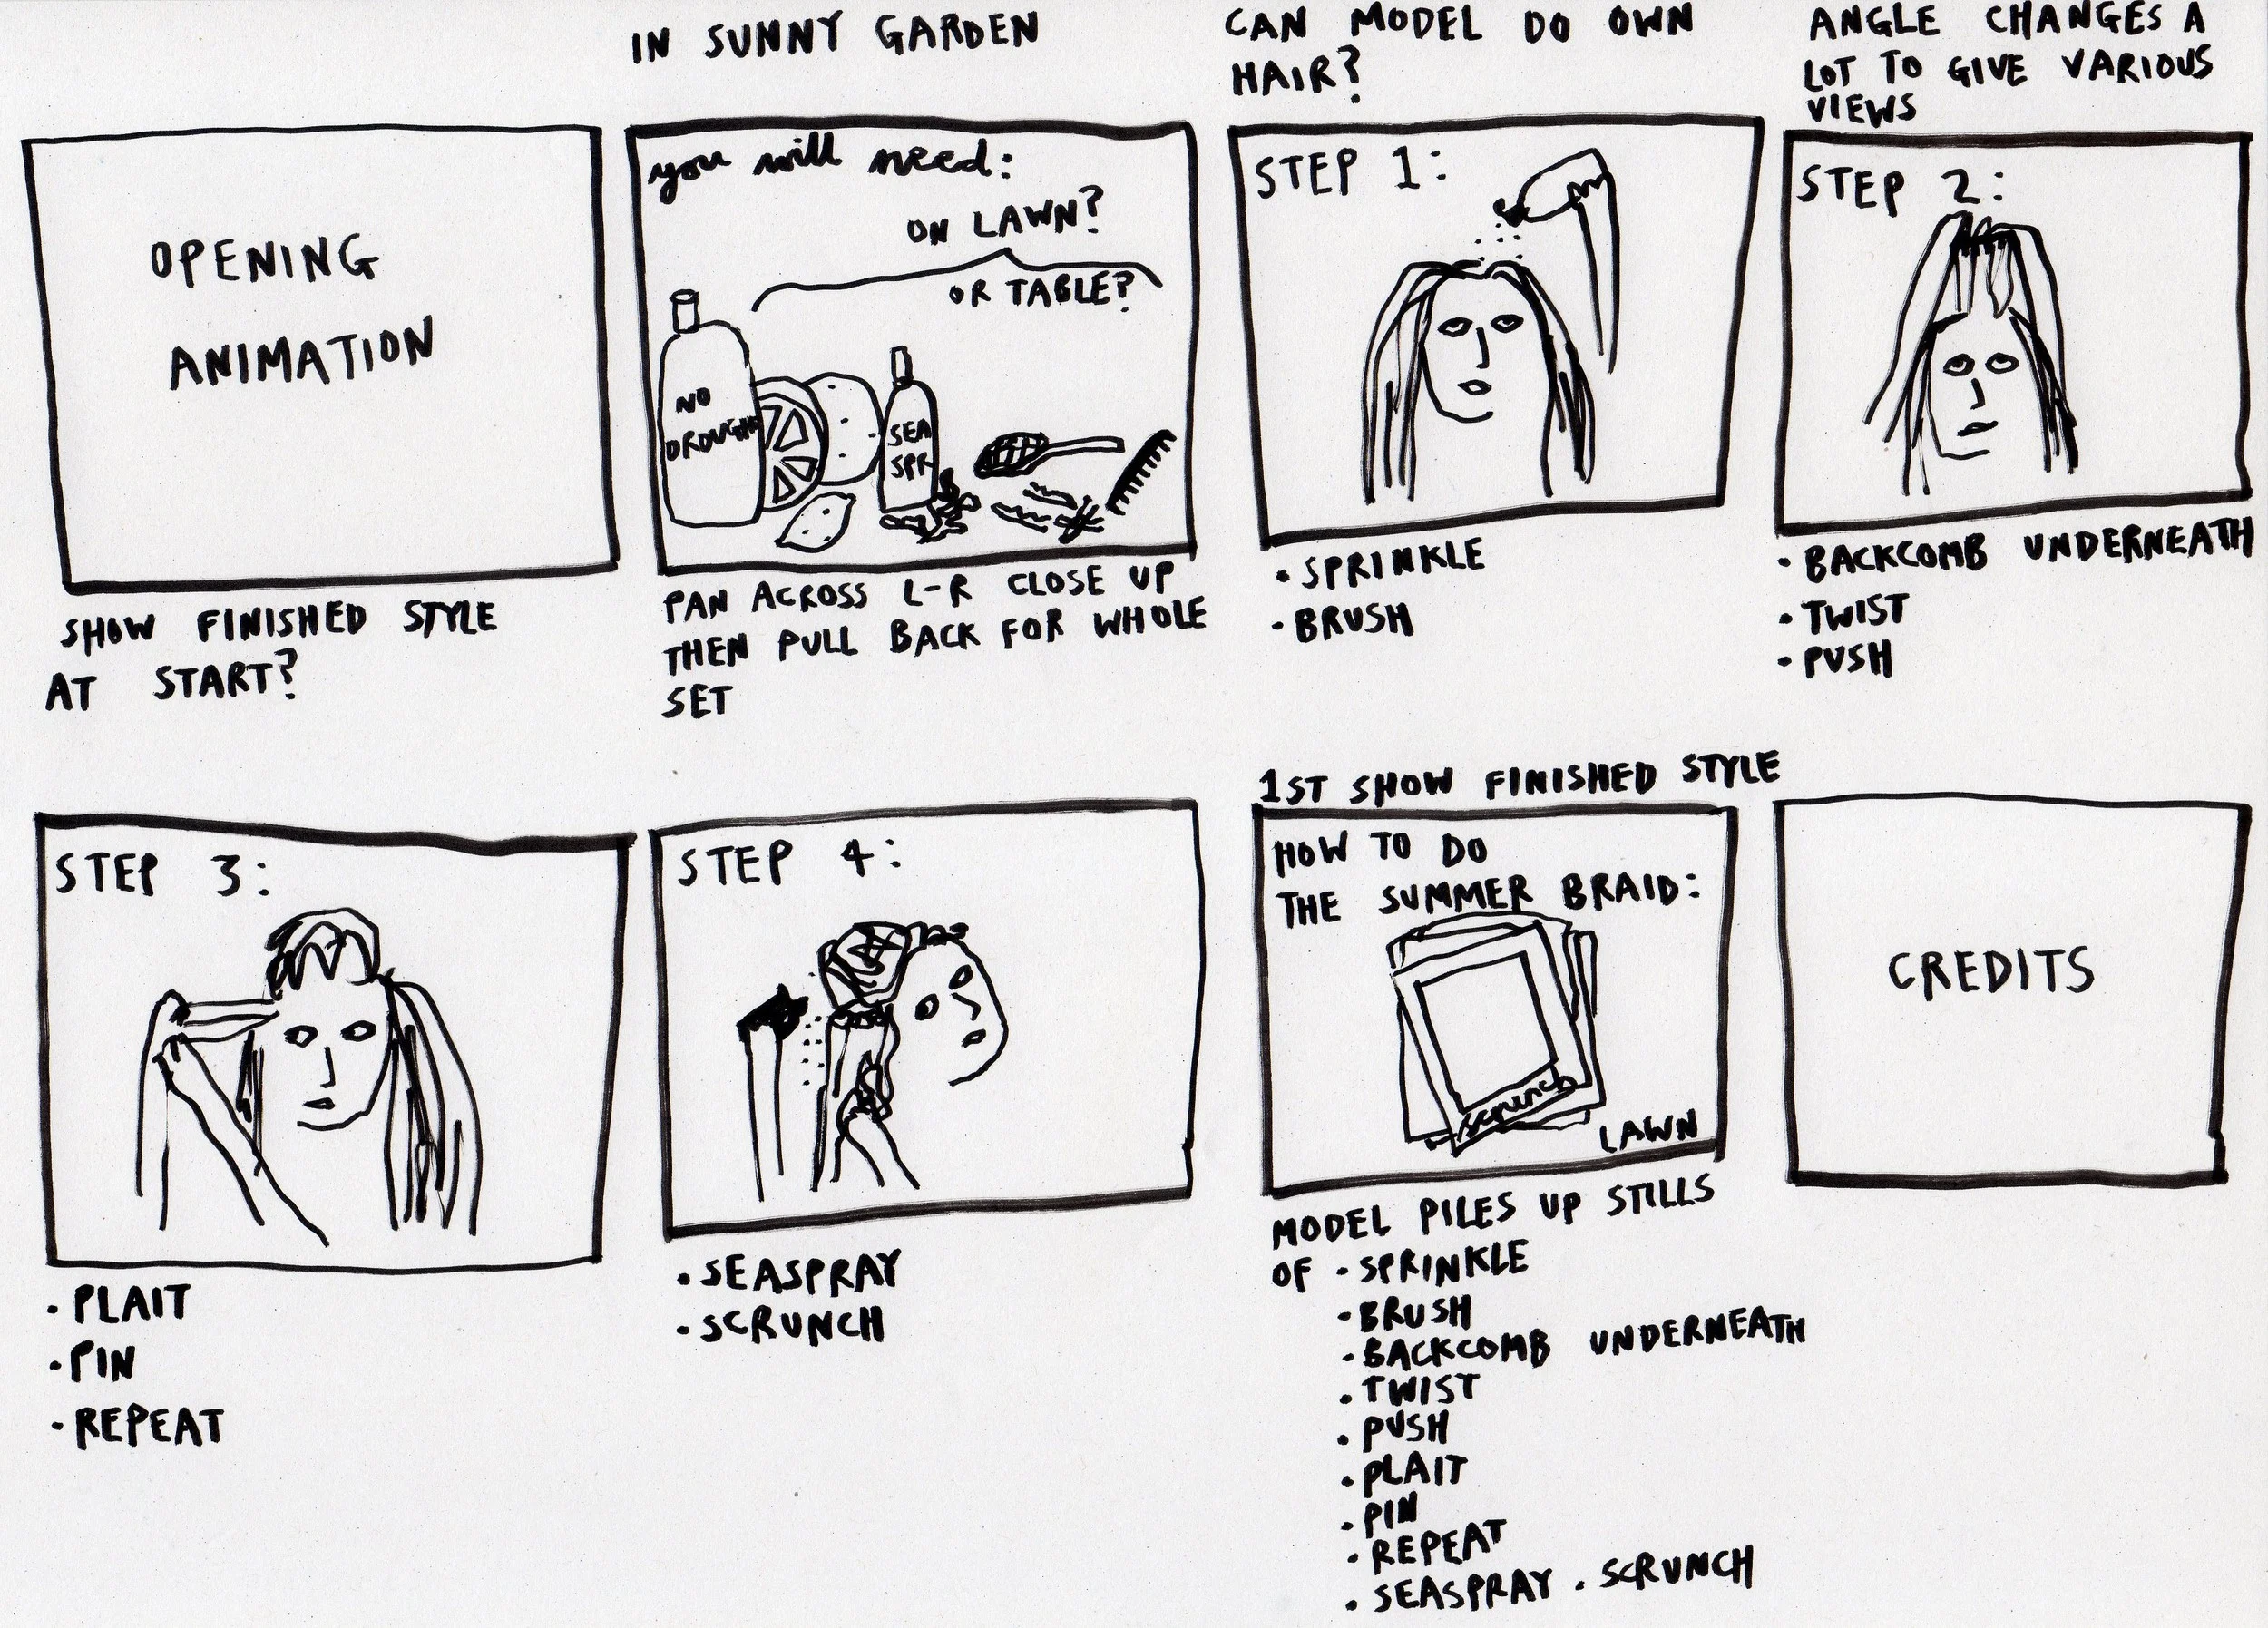 IN SUNNY GARDEN
CAN MODEL DO OWN
HAIR?
ANGLE CHANGES A
LOT TO GIVE VARIOUS
VIEWS
OPENING
ANIMATION
SHOW FINISHED STYLE
AT START?
you will need:
ON LAWN?
OR TABLE?
NO
DROUGHT
SEA
SPR
PAN ACROSS L-R CLOSE UP
THEN PULL BACK FOR WHOLE
SET
STEP 1:
• SPRINKLE
• BRUSH
STEP 2:
• BACKCOMB UNDERNEATH
• TWIST
• PUSH
STEP 3:
• PLAIT
• PIN
• REPEAT
STEP 4:
• SEASPRAY
• SCRUNCH
1ST SHOW FINISHED STYLE
HOW TO DO
THE SUMMER BRAID:
scrunch
LAWN
MODEL PILES UP STILLS
OF • SPRINKLE
• BRUSH
• BACKCOMB UNDERNEATH
• TWIST
• PUSH
• PLAIT
• PIN
• REPEAT
• SEASPRAY • SCRUNCH
CREDITS